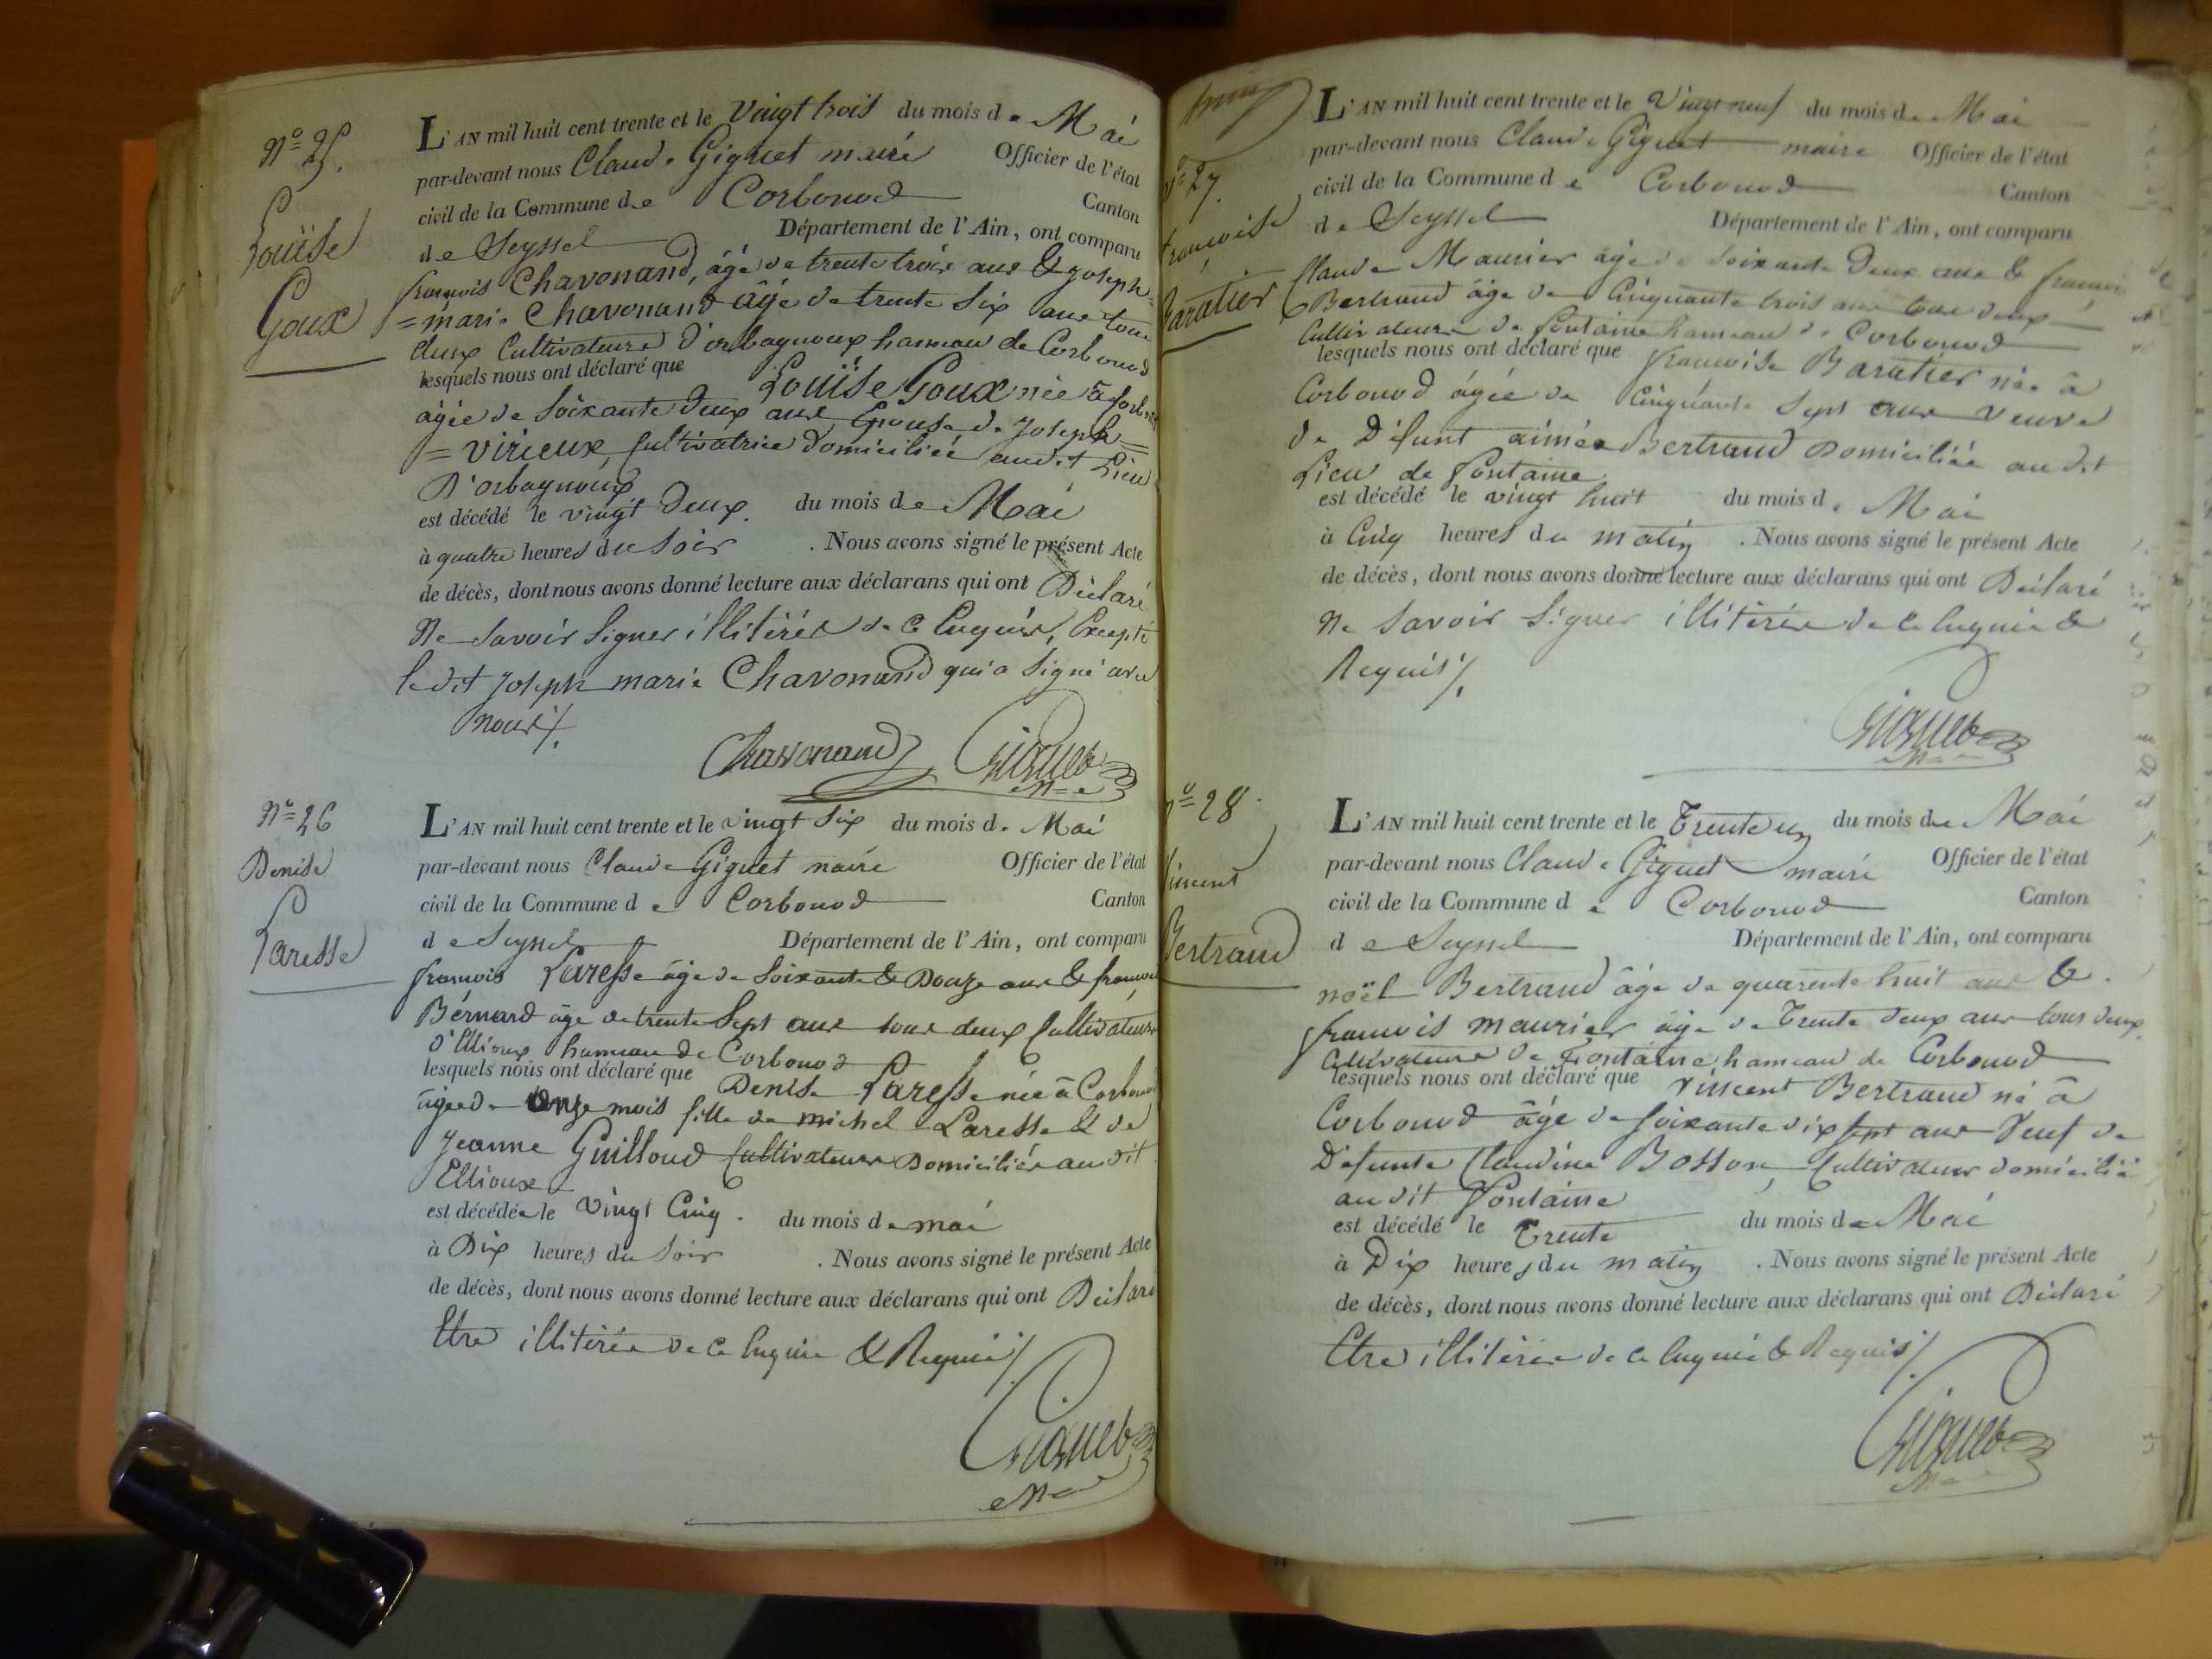 N.º 25.
Louïse
Goux
L'AN mil huit cent trente et le Vingt trois du mois de Mai
par-devant nous Claude Giguet maire Officier de l'état
civil de la Commune de Corbonod Canton
de Seyssel Département de l'Ain, ont comparu
françois Chavonand, âgé de trente trois ans & joseph
=marie Chavonand âgé de trente Six ans tous
deux Cultivateurs d'orbagnoux hameau de Corbonod
lesquels nous ont déclaré que Louïse Goux née à Corbonod
âgée de Soixante Deux ans Epouse de Joseph=
=virieux, Cultivatrice domiciliée audit Lieu
D'orbagnoux
est décédé le vingt Deux. du mois de Mai
à quatre heures du Soir . Nous avons signé le présent Acte
de décès, dont nous avons donné lecture aux déclarans qui ont Déclaré
Ne Savoir Signer illitérés de ce Enquis, Excepté
ledit Joseph marie Chavonand qui a Signé avec
nous ⁒.
Chavonand Giguet
N.º 26
Denise
Laresse
L'AN mil huit cent trente et le vingt Six du mois de Mai
par-devant nous Claude Giguet maire Officier de l'état
civil de la Commune de Corbonod Canton
de Seyssel Département de l'Ain, ont comparu
françois Laresse âgé de Soixante & Douze ans & françois
Bérnard âgé de trente Sept ans tous deux Cultivateurs
d'Ellioux hameau de Corbonod
lesquels nous ont déclaré que Denise Laresse née à Corbonod
âgée de onze mois fille de michel Laresse & de
Jeanne Guilloud Cultivateurs Domiciliés audit
Ellioux
est décédée le vingt Cinq. du mois de mai
à Dix heures du Soir . Nous avons signé le présent Acte
de décès, dont nous avons donné lecture aux déclarans qui ont Déclaré
Etre illitérés de ce Enquis & Requis ⁒.
Giguet
N.º 27.
françoise
Baratier
L'AN mil huit cent trente et le Vingt neuf du mois de Mai
par-devant nous Claude Giguet maire Officier de l'état
civil de la Commune de Corbonod Canton
de Seyssel Département de l'Ain, ont comparu
Claude Maurier âgé de Soixante Deux ans & françois
Bertrand âgé de Cinquante trois ans tous deux
Cultivateurs de fontaine hameau de Corbonod
lesquels nous ont déclaré que françoise Baratier née à
Corbonod âgée de Cinquante Sept ans veuve
de Défunt aimée Bertrand Domiciliée audit
Lieu de fontaine
est décédé le vingt huit du mois de Mai
à Cinq heures du matin . Nous avons signé le présent Acte
de décès, dont nous avons donné lecture aux déclarans qui ont Déclaré
Ne Savoir Signer illitérés de ce Enquis &
Requis ⁒.
Giguet
N.º 28.
Vincent
Bertrand
L'AN mil huit cent trente et le Trente un du mois de Mai
par-devant nous Claude Giguet maire Officier de l'état
civil de la Commune de Corbonod Canton
de Seyssel Département de l'Ain, ont comparu
noël Bertrand âgé de quarente huit ans &
françois maurier âgé de Trente deux ans tous deux
Cultivateurs de Fontaine hameau de Corbonod
lesquels nous ont déclaré que vincent Bertrand né à
Corbonod âgé de Soixante dix sept ans Veuf de
Défunte Claudine Bosson, Cultivateur domicilié
audit Fontaine
est décédé le Trente du mois de Mai
à Dix heures du matin . Nous avons signé le présent Acte
de décès, dont nous avons donné lecture aux déclarans qui ont Déclaré
Etre illitérés de ce Enquis & Requis ⁒.
Giguet